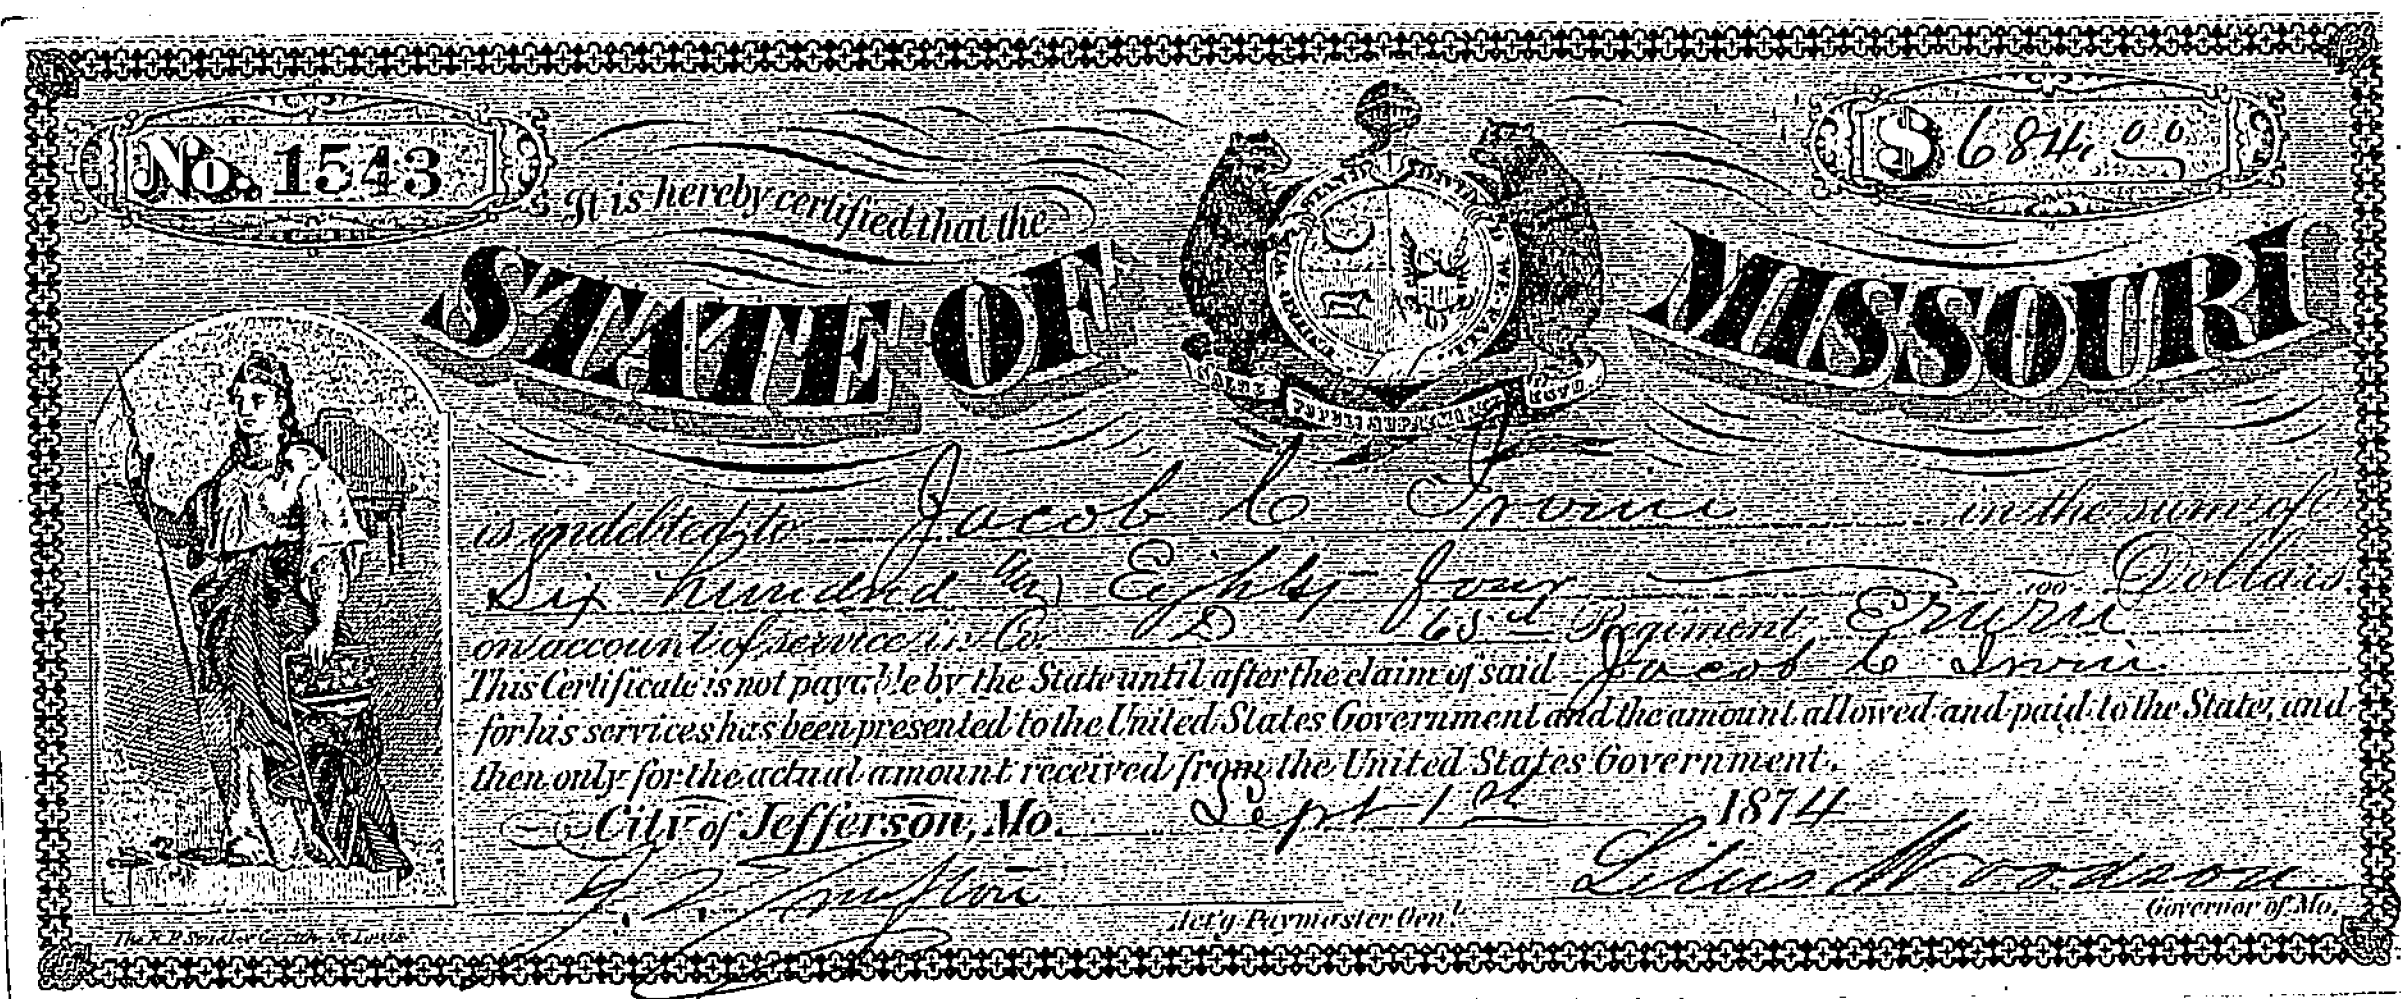 No. 1543
$ 684.00
It is hereby certified that the
STATE OF MISSOURI
UNITED WE STAND DIVIDED WE FALL
SALUS POPULI SUPREMA LEX ESTO
is indebted to Jacob C Irvin in the sum of
Six hundred and Eighty four 100 Dollars
on account of service in Co. D 65th Regiment
This Certificate is not payable by the State until after the claim of said Jacob C Irvin
for his services has been presented to the United States Government and the amount allowed and paid to the State, and
then only for the actual amount received from the United States Government.
City of Jefferson, Mo. Sept 1st 1874
Silas Woodson
Act'g Paymaster Genl.
Governor of Mo.